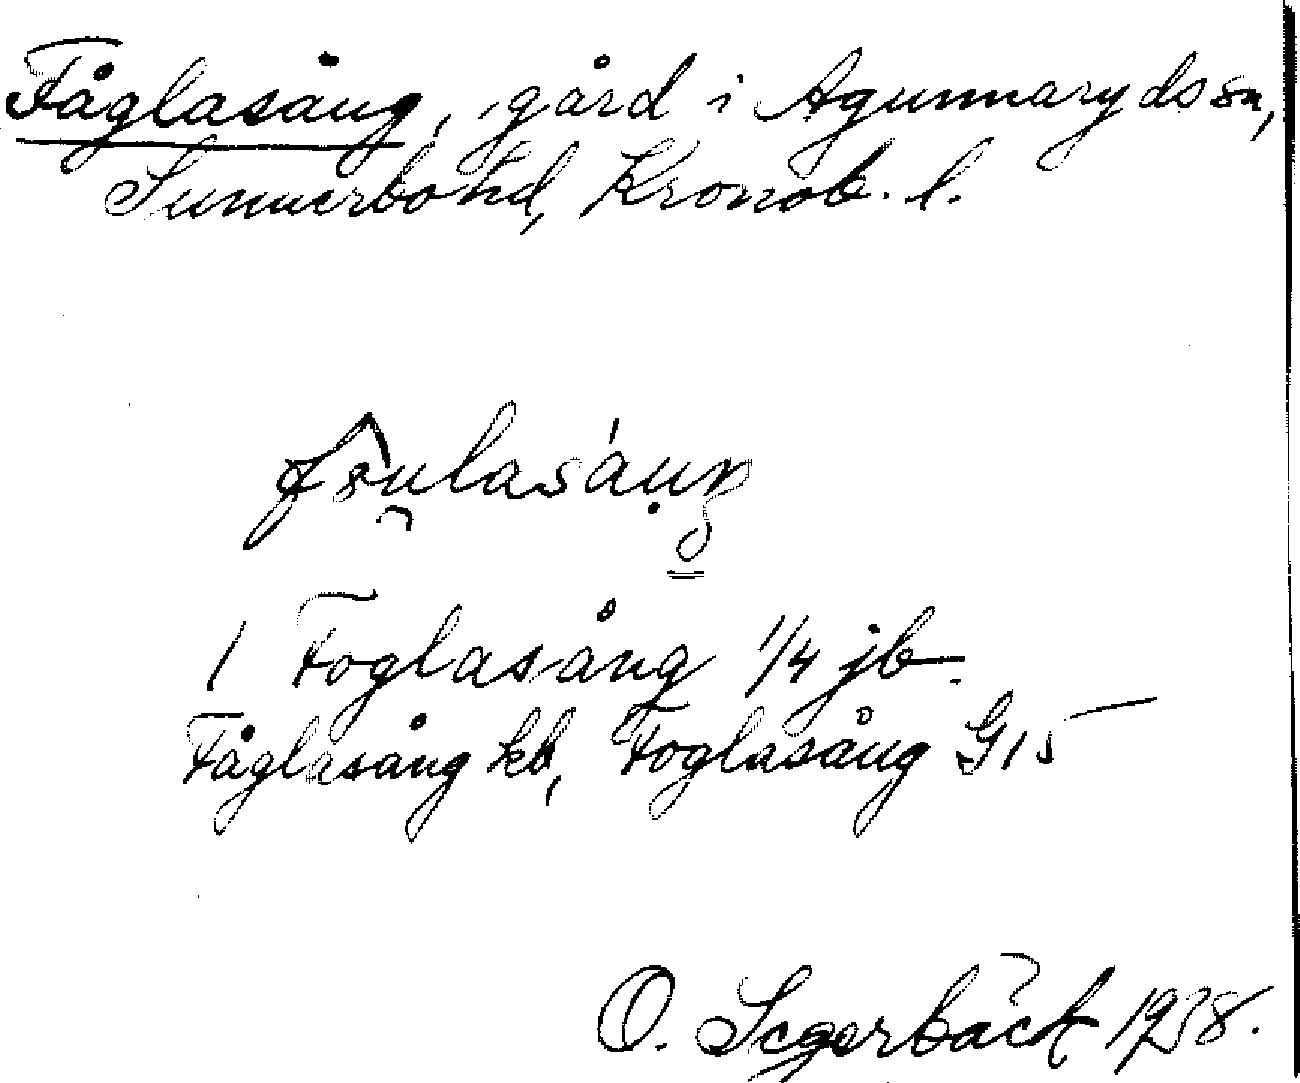 Fåglasång, gård i Agunnaryds sn,
Sunnerbo hd, Kronob. l.
1 Foglasång 1/4 jb.
Fåglasång kb, Foglasång G 15
O. Segerbäck 1938.